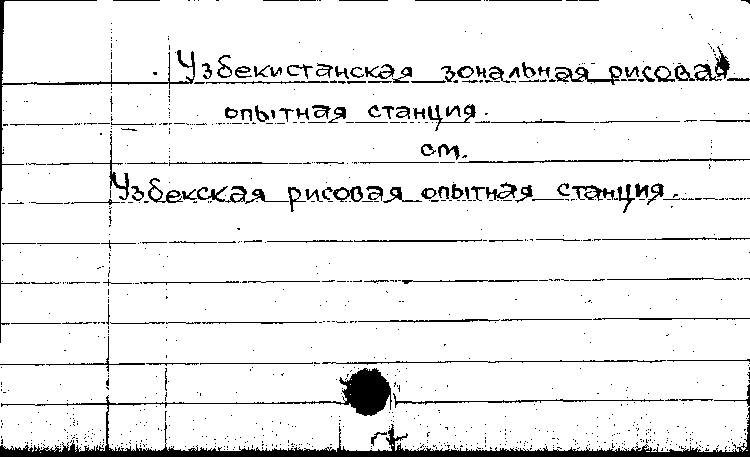 Узбекистанская зональная рисовая
опытная станция.
см.
Узбекская рисовая опытная станция.